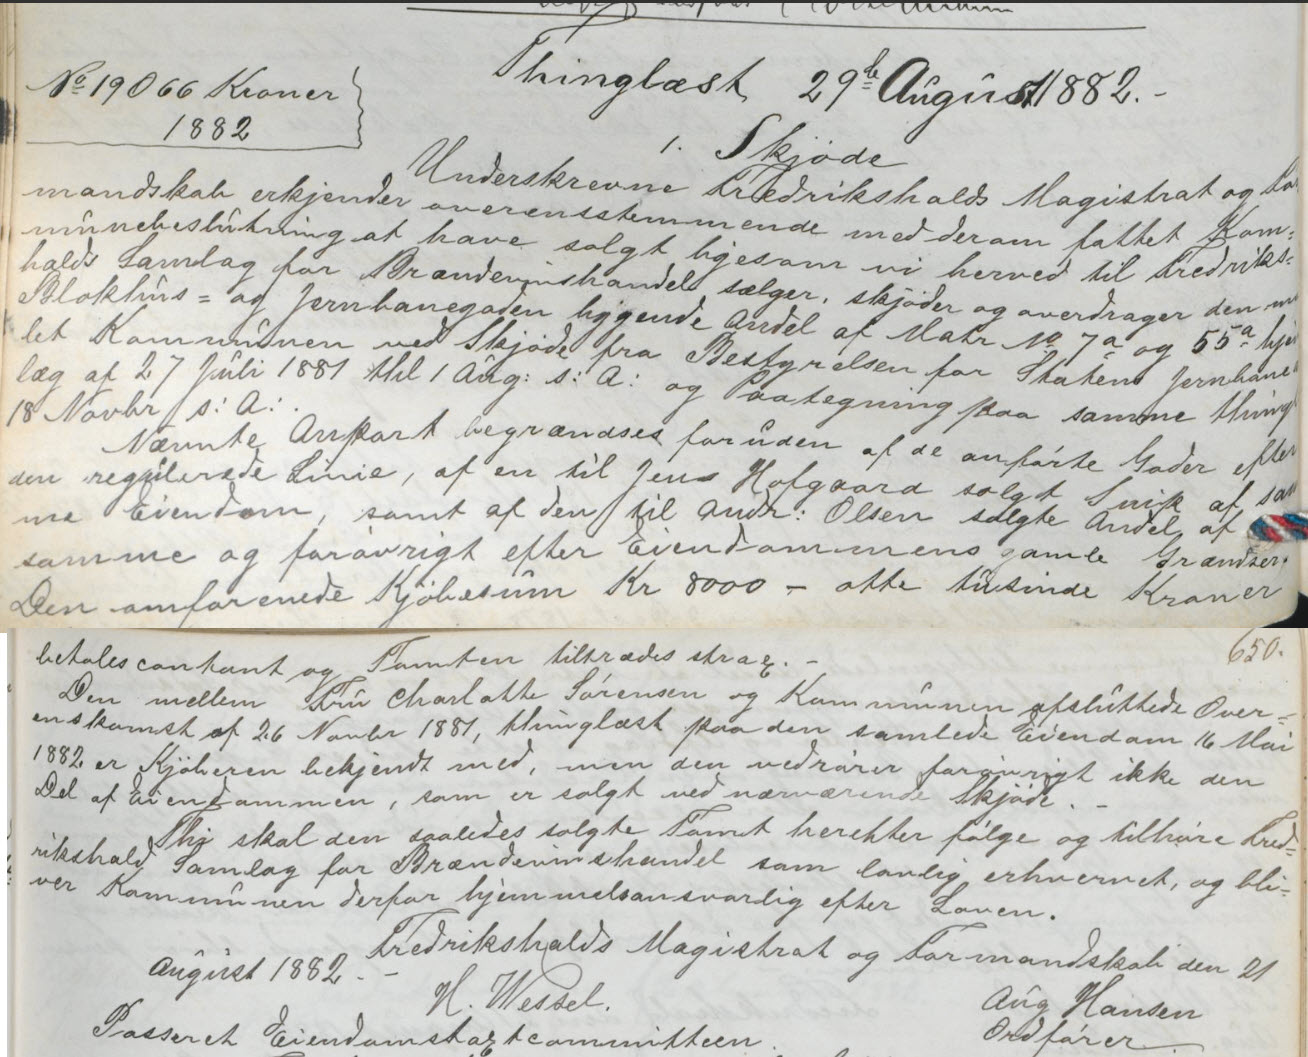 Thinglæst 29de August 1882. -
No 19066 Kroner
1882
1. Skjøde
Underskrevne Fredrikshalds Magistrat og For
mandskab erkjender overensstemmende med derom fattet Kom=
munebeslutning at have solgt ligesom vi herved til Fredriks=
halds Samlag for Brændevinshandel sælger, skjøder og overdrager den
Blokhus= og Jernbanegaden liggende Andel af Matr No 7a og 55a
let Kommunen ved Skjøde fra Bestyrelsen for Statens Jernbane
læg af 27 Juli 1881 thl 1 Aug: s: A: og Paategning paa samme thingl
18 Novbr s: A:.
Nævnte Anpart begrændses foruden af de anførte Gader efter
den regulerede Linie, af en til Jens Hofgaard solgt Snip af sam
me Eiendom, samt af den til Andr: Olsen solgte Andel af
samme og forøvrigt efter Eiendommens gamle Grændser.
Den omforenede Kjøbesum Kr 8000 - otte tusinde Kroner
650.
betales contant og Tomten tiltrædes strax. -
Den mellem Fru Charlotte Sørensen og Kommunen afsluttede Over=
enskomst af 26 Novbr 1881, thinglæst paa den samlede Eiendom 16 Mai
1882 er Kjøberen bekjendt med, men den vedrører forøvrigt ikke den
Del af Eiendommen, som er solgt ved nærværende Skjøde. -
Thi skal den saaledes solgte Tomt herefter følge og tilhøre Fred=
rikshald Samlag for Brændevinshandel som lovlig erhvervet, og bli=
ver Kommunen derfor hjemmelsansvarlig efter Loven.
Fredrikshalds Magistrat og Formandskab den 21
August 1882. -
H. Wessel. Aug Hansen
Ordfører
Passeret Eiendomstaxtcommitteen